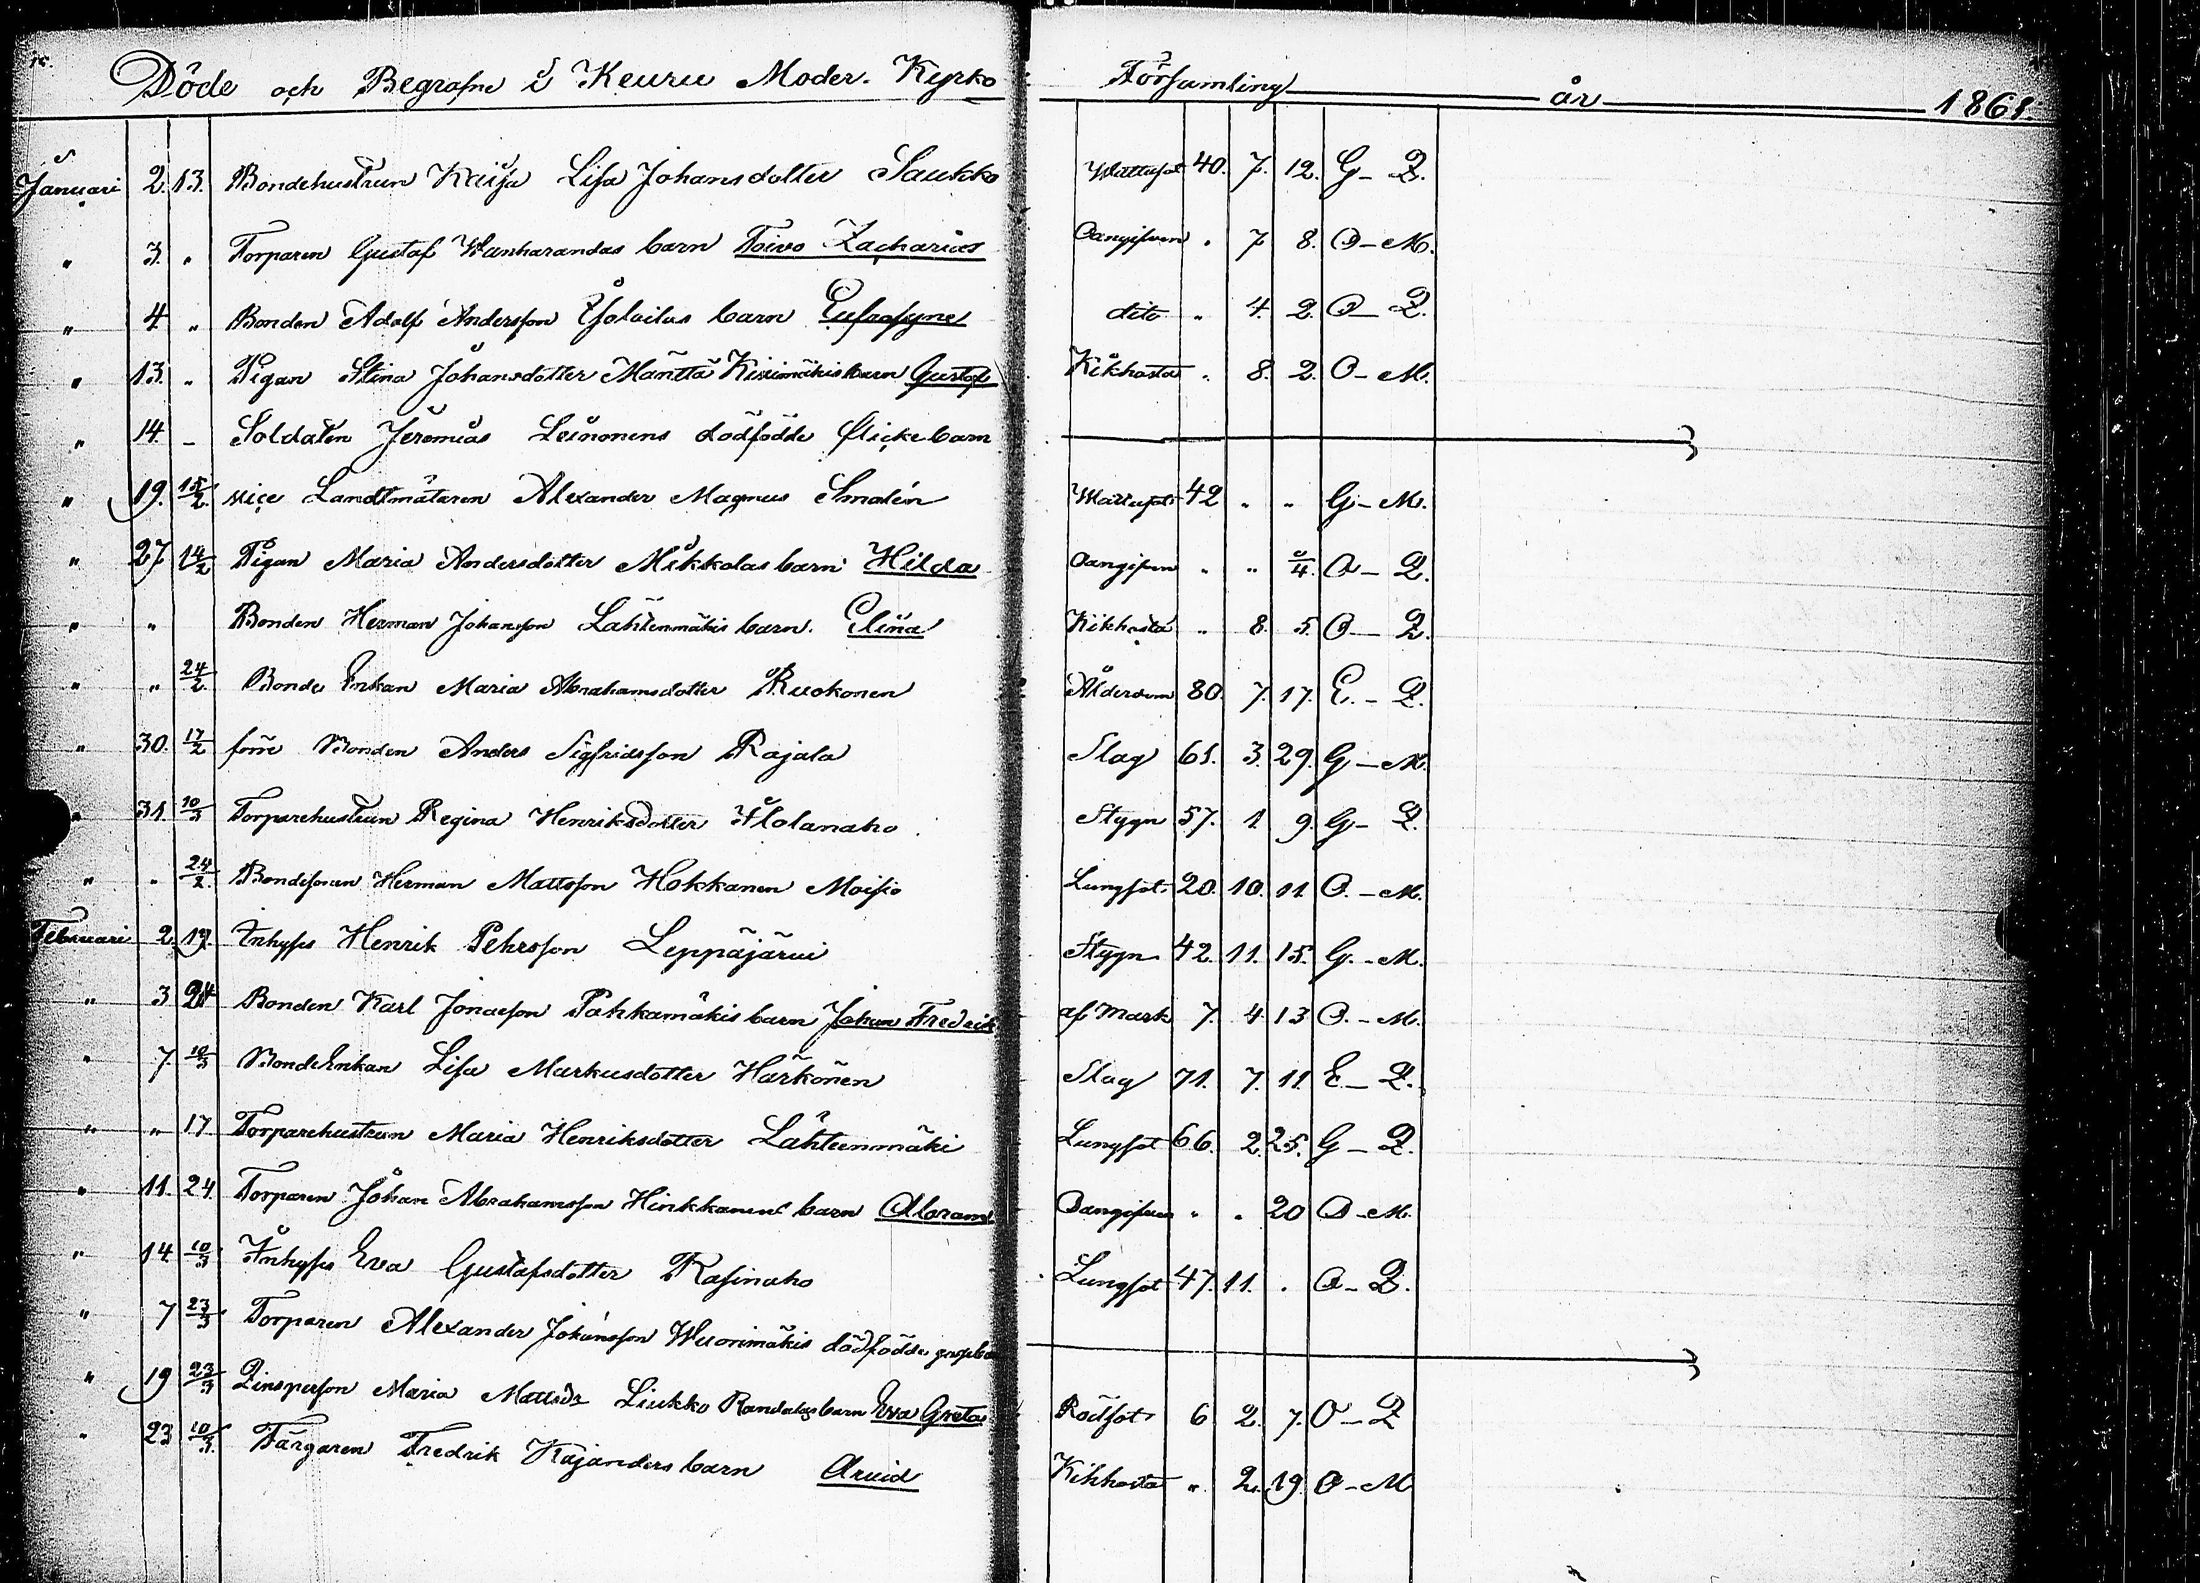 Döde och Begrafne i Keuru Moder-Kyrko Församling år 1861.
Januari 2. 13. Bondehustrun Kaisa Lisa Johansdotter Saukko Wattusot 40. 7. 12. G - Q.
" 3. " Torparen Gustaf Wanharandas barn Toivo Zacharias Oangifven " 7 8. O - M.
" 4 " Bonden Adolf Andersson Ysolailas barn Eufrosyne dito " 4. 2. O - Q.
" 13. " Pigan Stina Johansdotter Mänttä Kisimäkis barn Gustaf Kikhosta " 8. 2. O - M.
" 14. - Soldaten Jeremias Leinonens dödfödde flicke barn
" 19. 15/2. vice Landtmätaren Alexander Magnus Smalén Wattusot 42 " " G - M.
" 27 14/2 Pigan Maria Andersdotter Mikkolas barn Hilda Oangifven " " 0/4. O - Q.
" " Bonden Herman Johansson Lähtenmäkis barn. Elina Kikhosta " 8. 5. O - Q.
" " 24/2. Bonde Enkan Maria Abrahamsdotter Ruokonen Ålderdom 80. 7. 17. E. - Q.
" 30. 17/2 förre Bonden Anders Sigfridsson Rajala Slag 61. 3. 29. G - M.
" 31 10/3 Torparehustrun Regina Henriksdotter Holanaho Stygn 57. 1. 9. G - Q.
" " 24/2. Bondesonen Herman Mattsson Hokkanen Moisio Lungsot 20. 10. 11. O. - M.
Februari 2. 17. Inhyses Henrik Pehrsson Leppäjärvi Stygn 42. 11. 15. G. - M.
" 3 24 Bonden Karl Jonasson Pahkamäkis barn Johan Fredrik af Mask 7. 4. 13 O. - M.
" 7. 10/3 Bonde Enkan Lisa Markusdotter Härkönen Slag 71. 7. 11 E - Q.
" " 17 Torparehustrun Maria Henriksdotter Lähteenmäki Lungsot 66. 2. 25. G - Q.
" 11. 24. Torparen Johan Abrahamsson Hinkkanens barn Abram Oangifven " " 20 O - M.
" 14. 10/3 Inhyses Eva Gustafsdotter Rasinaho Lungsot 47. 11. . O - Q.
" 7 23/3 Torparen Alexander Johansson Wuorimäkis dödfödde
" 19 23/3 Qinsperson Maria Mattsdr Liukko Randalas barn Eva Greta Rödsot 6 2. 7. O - Q
" 23 10/3. Färgaren Fredrik Kajanders barn Arvid Kikhosta " 2. 19. O - M